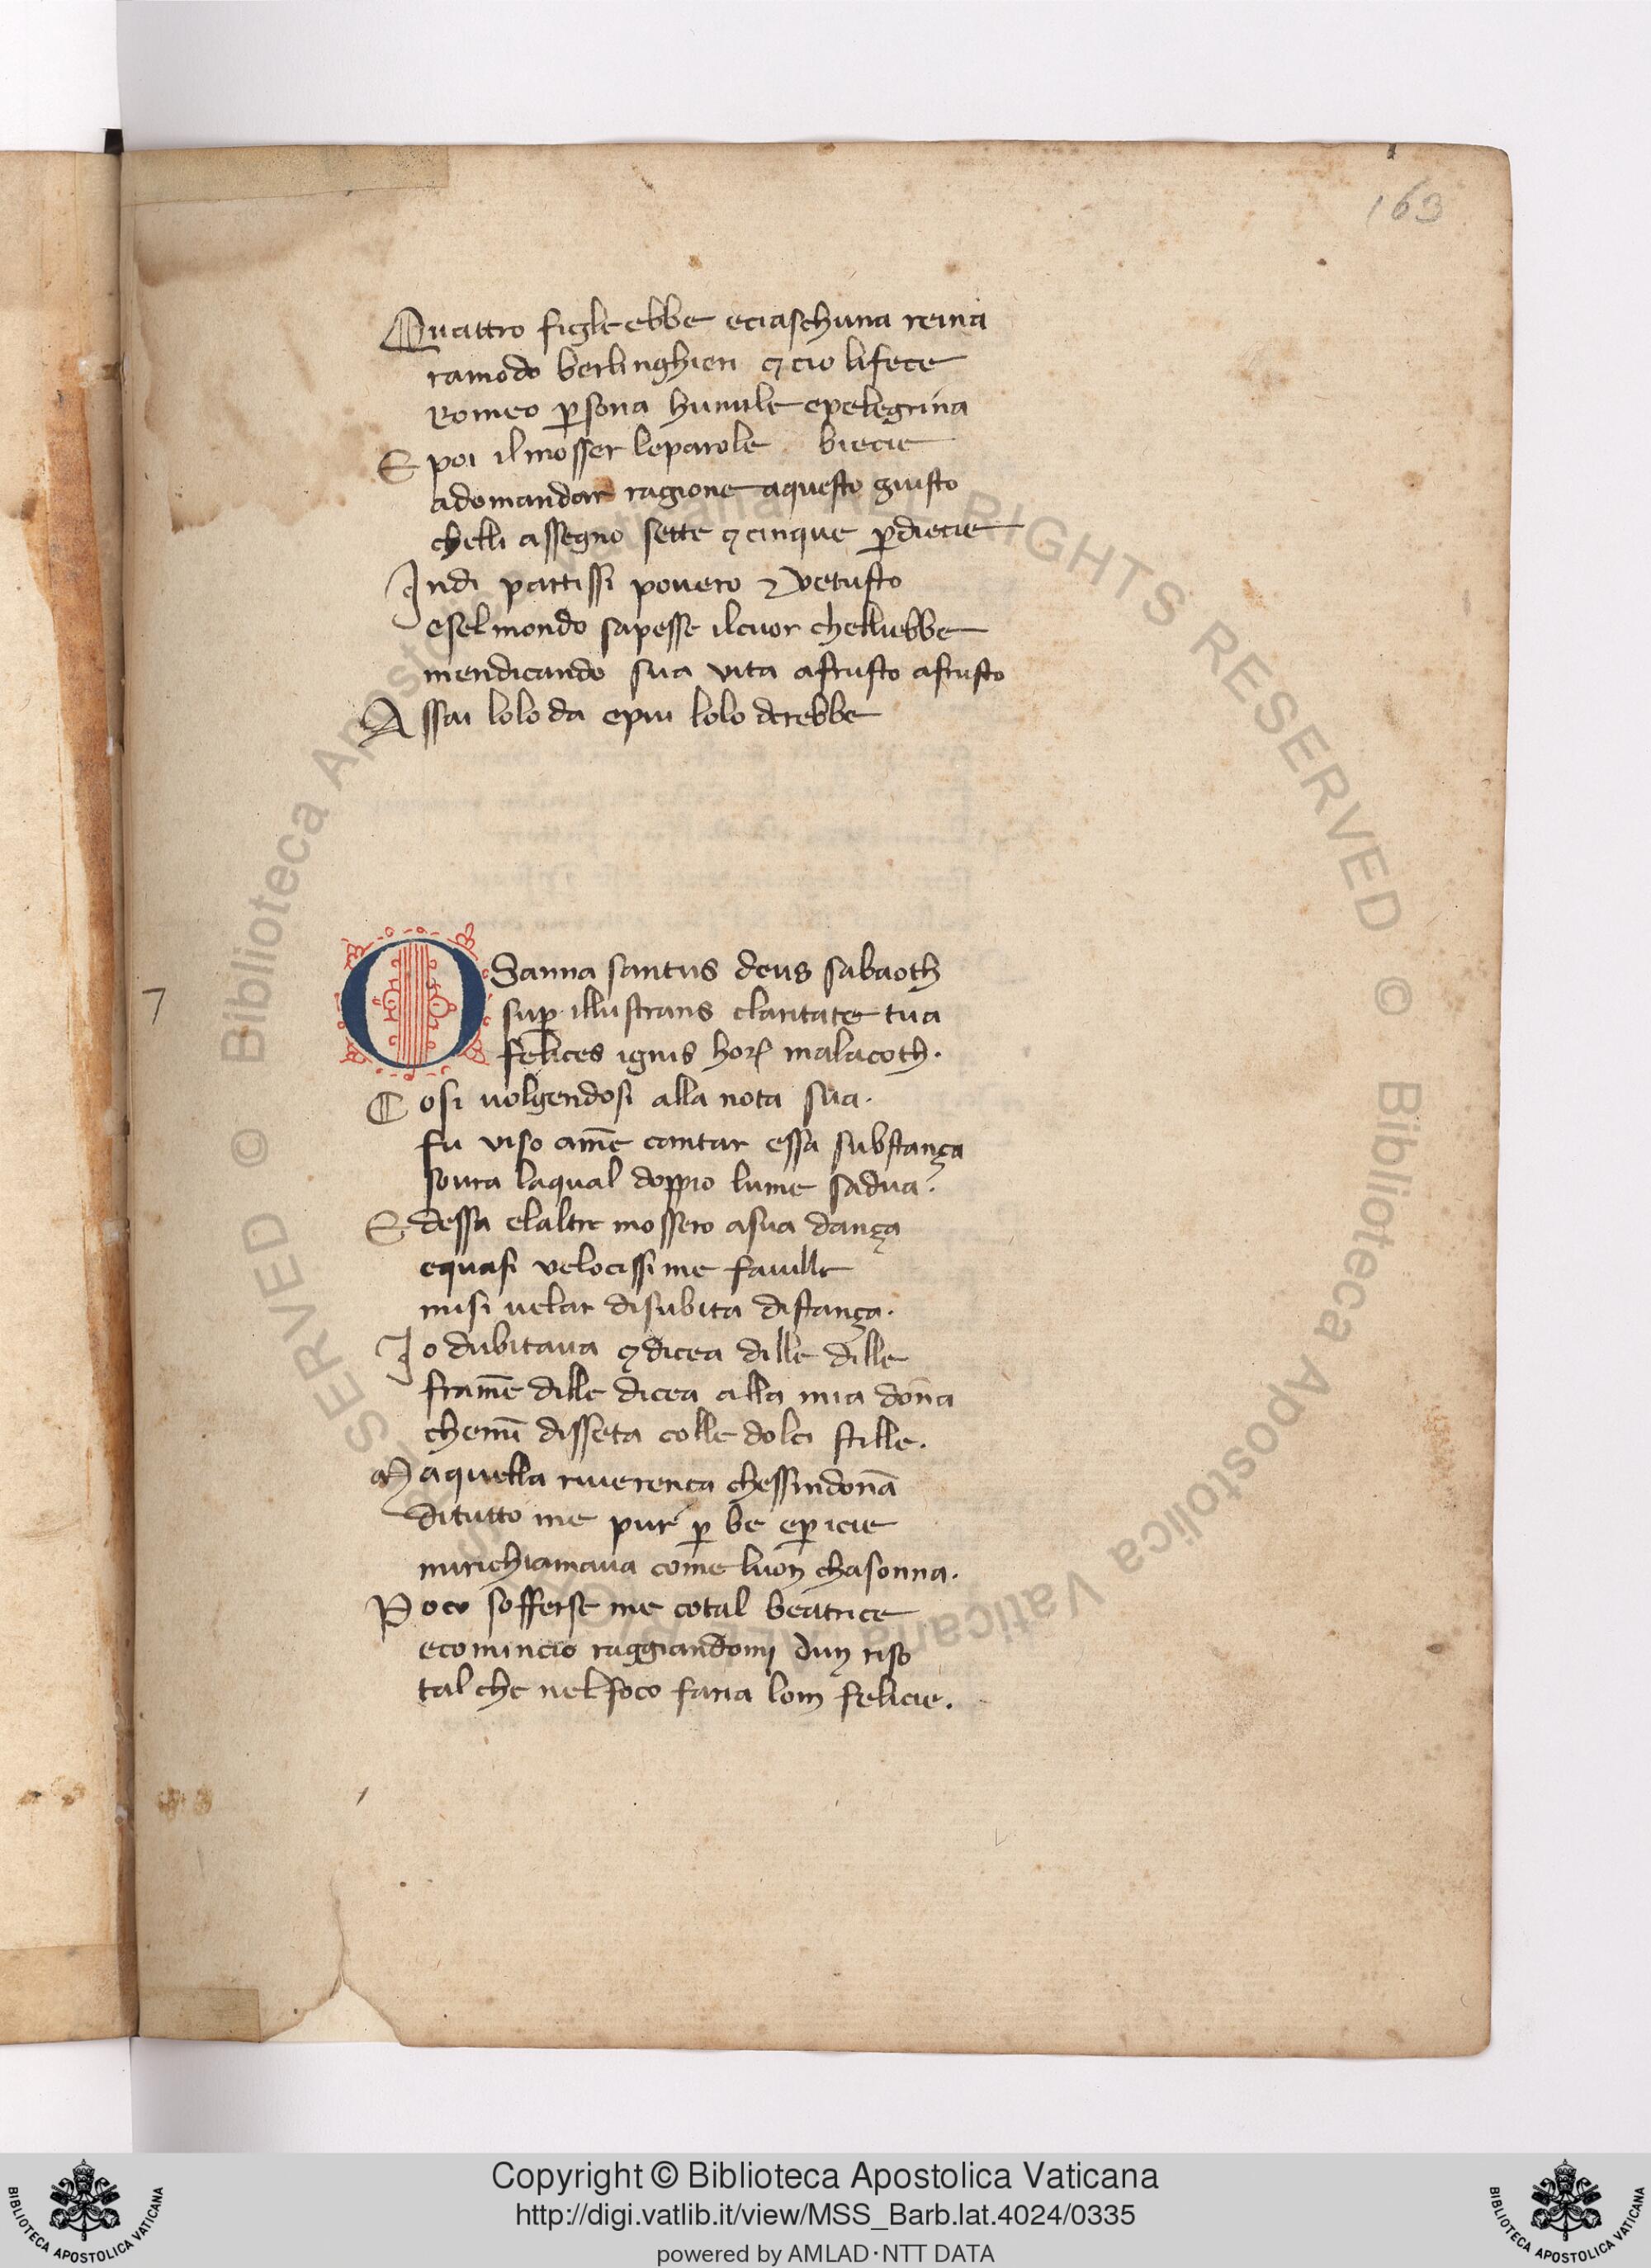 163
Quattro figle ebbe eciaschuna reina
ramodo berlinghieri ⁊ cio li fece
Romeo ꝑsona humile epelegrina
E poi il mosser leparole biecie
adomandar ragione aquesto giusto
chelli assegno sette ⁊ cinque ꝑ diecie
Indi partissi pouero ⁊ vetusto
esel mondo sapesse ilcuor chelliebbe
mendicando sua vita afrusto afrusto
Assai lolo da epiu lolo derebbe
7
OSanna santus deus sabaoth
suꝑ illustrans claritate tua
felices ignis hoꝝ malacoth.
Cosi uolgendosi alla nota sua.
fu viso am̄e cantar essa substança
soura laqual doppio lume sadua.
E dessa elaltre mossero asua dança
equasi velocissime fauille
misi uelar disubita distança.
Io dubitaua ⁊ dicea dille dille
fram̄e dille dicea alla mia don̄a
chemī disseta colle dolci stille.
Ma quella riuerença chessindon̄a
ditutto me pur ꝑ be eꝑ icie
mirichiamaua come luom chasonna.
Poco sofferse me cotal beatrice
ecomincio raggiandomi dun riso
tal che nel foco faria lom felicie.
© Biblioteca Apostolica Vaticana ALL RIGHTS RESERVED © Biblioteca Apostolica Vaticana ALL RIGHTS RESERVED
Copyright © Biblioteca Apostolica Vaticana
http://digi.vatlib.it/view/MSS_Barb.lat.4024/0335
powered by AMLAD·NTT DATA
BIBLIOTECA APOSTOLICA VATICANA
BIBLIOTECA APOSTOLICA VATICANA